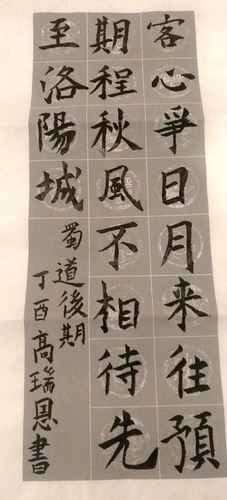 客心爭日月来往預
期程秋風不相待先
至洛陽城
蜀道後期
丁酉高瑞恩書